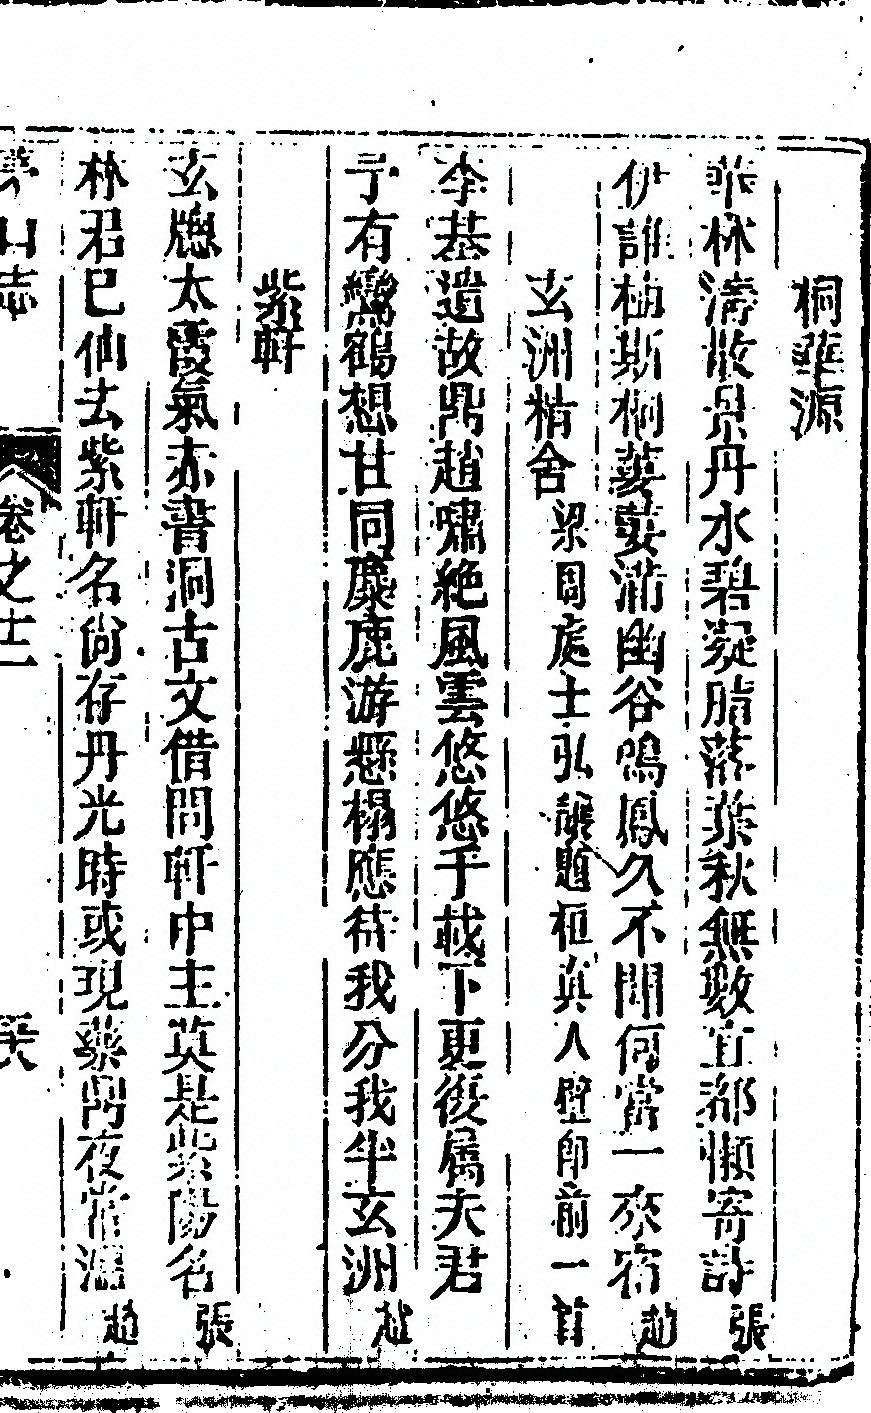 桐華源
華林濤散景丹水碧凝脂落葉秋無數宜都懶寄詩張
伊誰栖斯桐萋萋滿幽谷鳴鳳久不聞何當一來宿趙
玄洲精舍梁周處士弘讓題桓真人壁即前一首
李基遺故鼎趙嘯絶風雲悠悠千載下更復屬夫君
于有鸞鶴想甘同麋鹿游懸榻應待我分我半玄洲趙
紫軒
玄牕太霞氣赤書洞古文借問軒中主莫是紫陽名張
林君巳仙去紫軒名尙存丹光時或現藥鼎夜常溫趙
茅山志 卷之十二 天